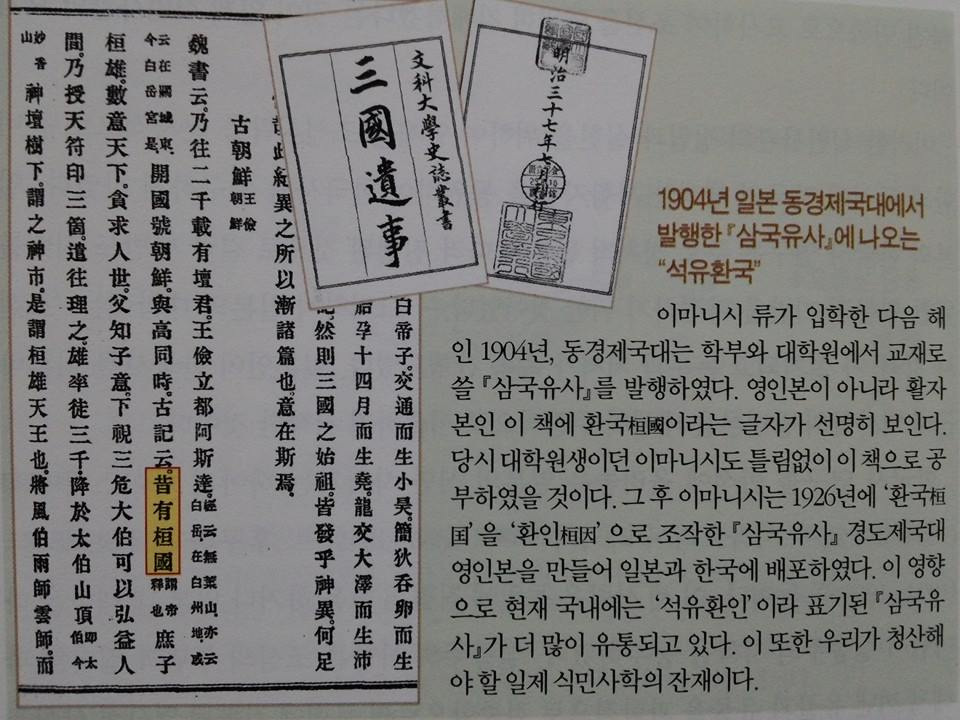 明治三十七年七月
文科大學史誌叢書
三國遺事
白帝子。交通而生小昊。簡狄呑卵而生
胎孕十四月而生堯。龍交大澤而生沛
然則三國之始祖。皆發乎神異。何足
此紀異之所以漸諸篇也。意在斯焉。
古朝鮮 王儉朝鮮
魏書云。乃往二千載有壇君。王儉立都阿斯達。經云無葉山。亦云白岳。在白州地。或
云在闕城東。今白岳宮是。開國號朝鮮。與高同時。古記云。昔有桓國 謂帝釋也 庶子
桓雄。數意天下。貪求人世。父知子意。下視三危大伯可以弘益人
間。乃授天符印三箇遣往理之。雄率徒三千。降於太伯山頂 即太伯今
妙香山 神壇樹下。謂之神市。是謂桓雄天王也。將風伯雨師雲師。而
1904년 일본 동경제국대에서
발행한 『삼국유사』에 나오는
“석유환국”
이마니시 류가 입학한 다음 해
인 1904년, 동경제국대는 학부와 대학원에서 교재로
쓸 『삼국유사』를 발행하였다. 영인본이 아니라 활자
본인 이 책에 환국桓國이라는 글자가 선명히 보인다.
당시 대학원생이던 이마니시도 틀림없이 이 책으로 공
부하였을 것이다. 그 후 이마니시는 1926년에 ‘환국桓
囯’을 ‘환인桓因’으로 조작한 『삼국유사』 경도제국대
영인본을 만들어 일본과 한국에 배포하였다. 이 영향
으로 현재 국내에는 ‘석유환인’이라 표기된 『삼국유
사』가 더 많이 유통되고 있다. 이 또한 우리가 청산해
야 할 일제 식민사학의 잔재이다.